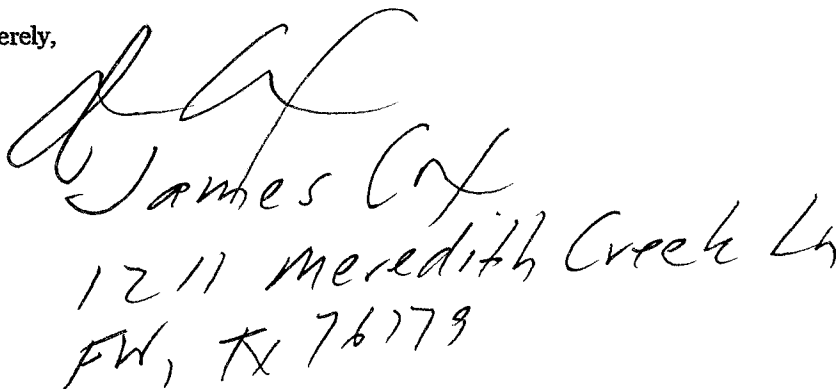 erely,
James Cox
1211 Meredith Creek Ln
FW, TX 76179